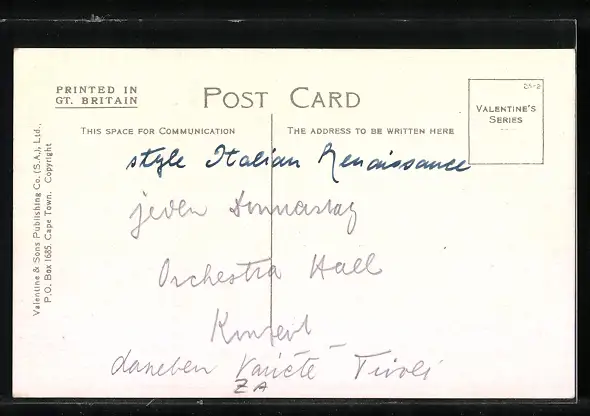 PRINTED IN
GT. BRITAIN
POST CARD
25-2
VALENTINE'S
SERIES
THIS SPACE FOR COMMUNICATION
THE ADDRESS TO BE WRITTEN HERE
Valentine & Sons Publishing Co. (S.A.), Ltd.,
P.O. Box 1685, Cape Town. Copyright
style Italian Renaissance
jeden Donnerstag
Orchestra Hall
Konzert
daneben Varieté - Tivoli
ZA